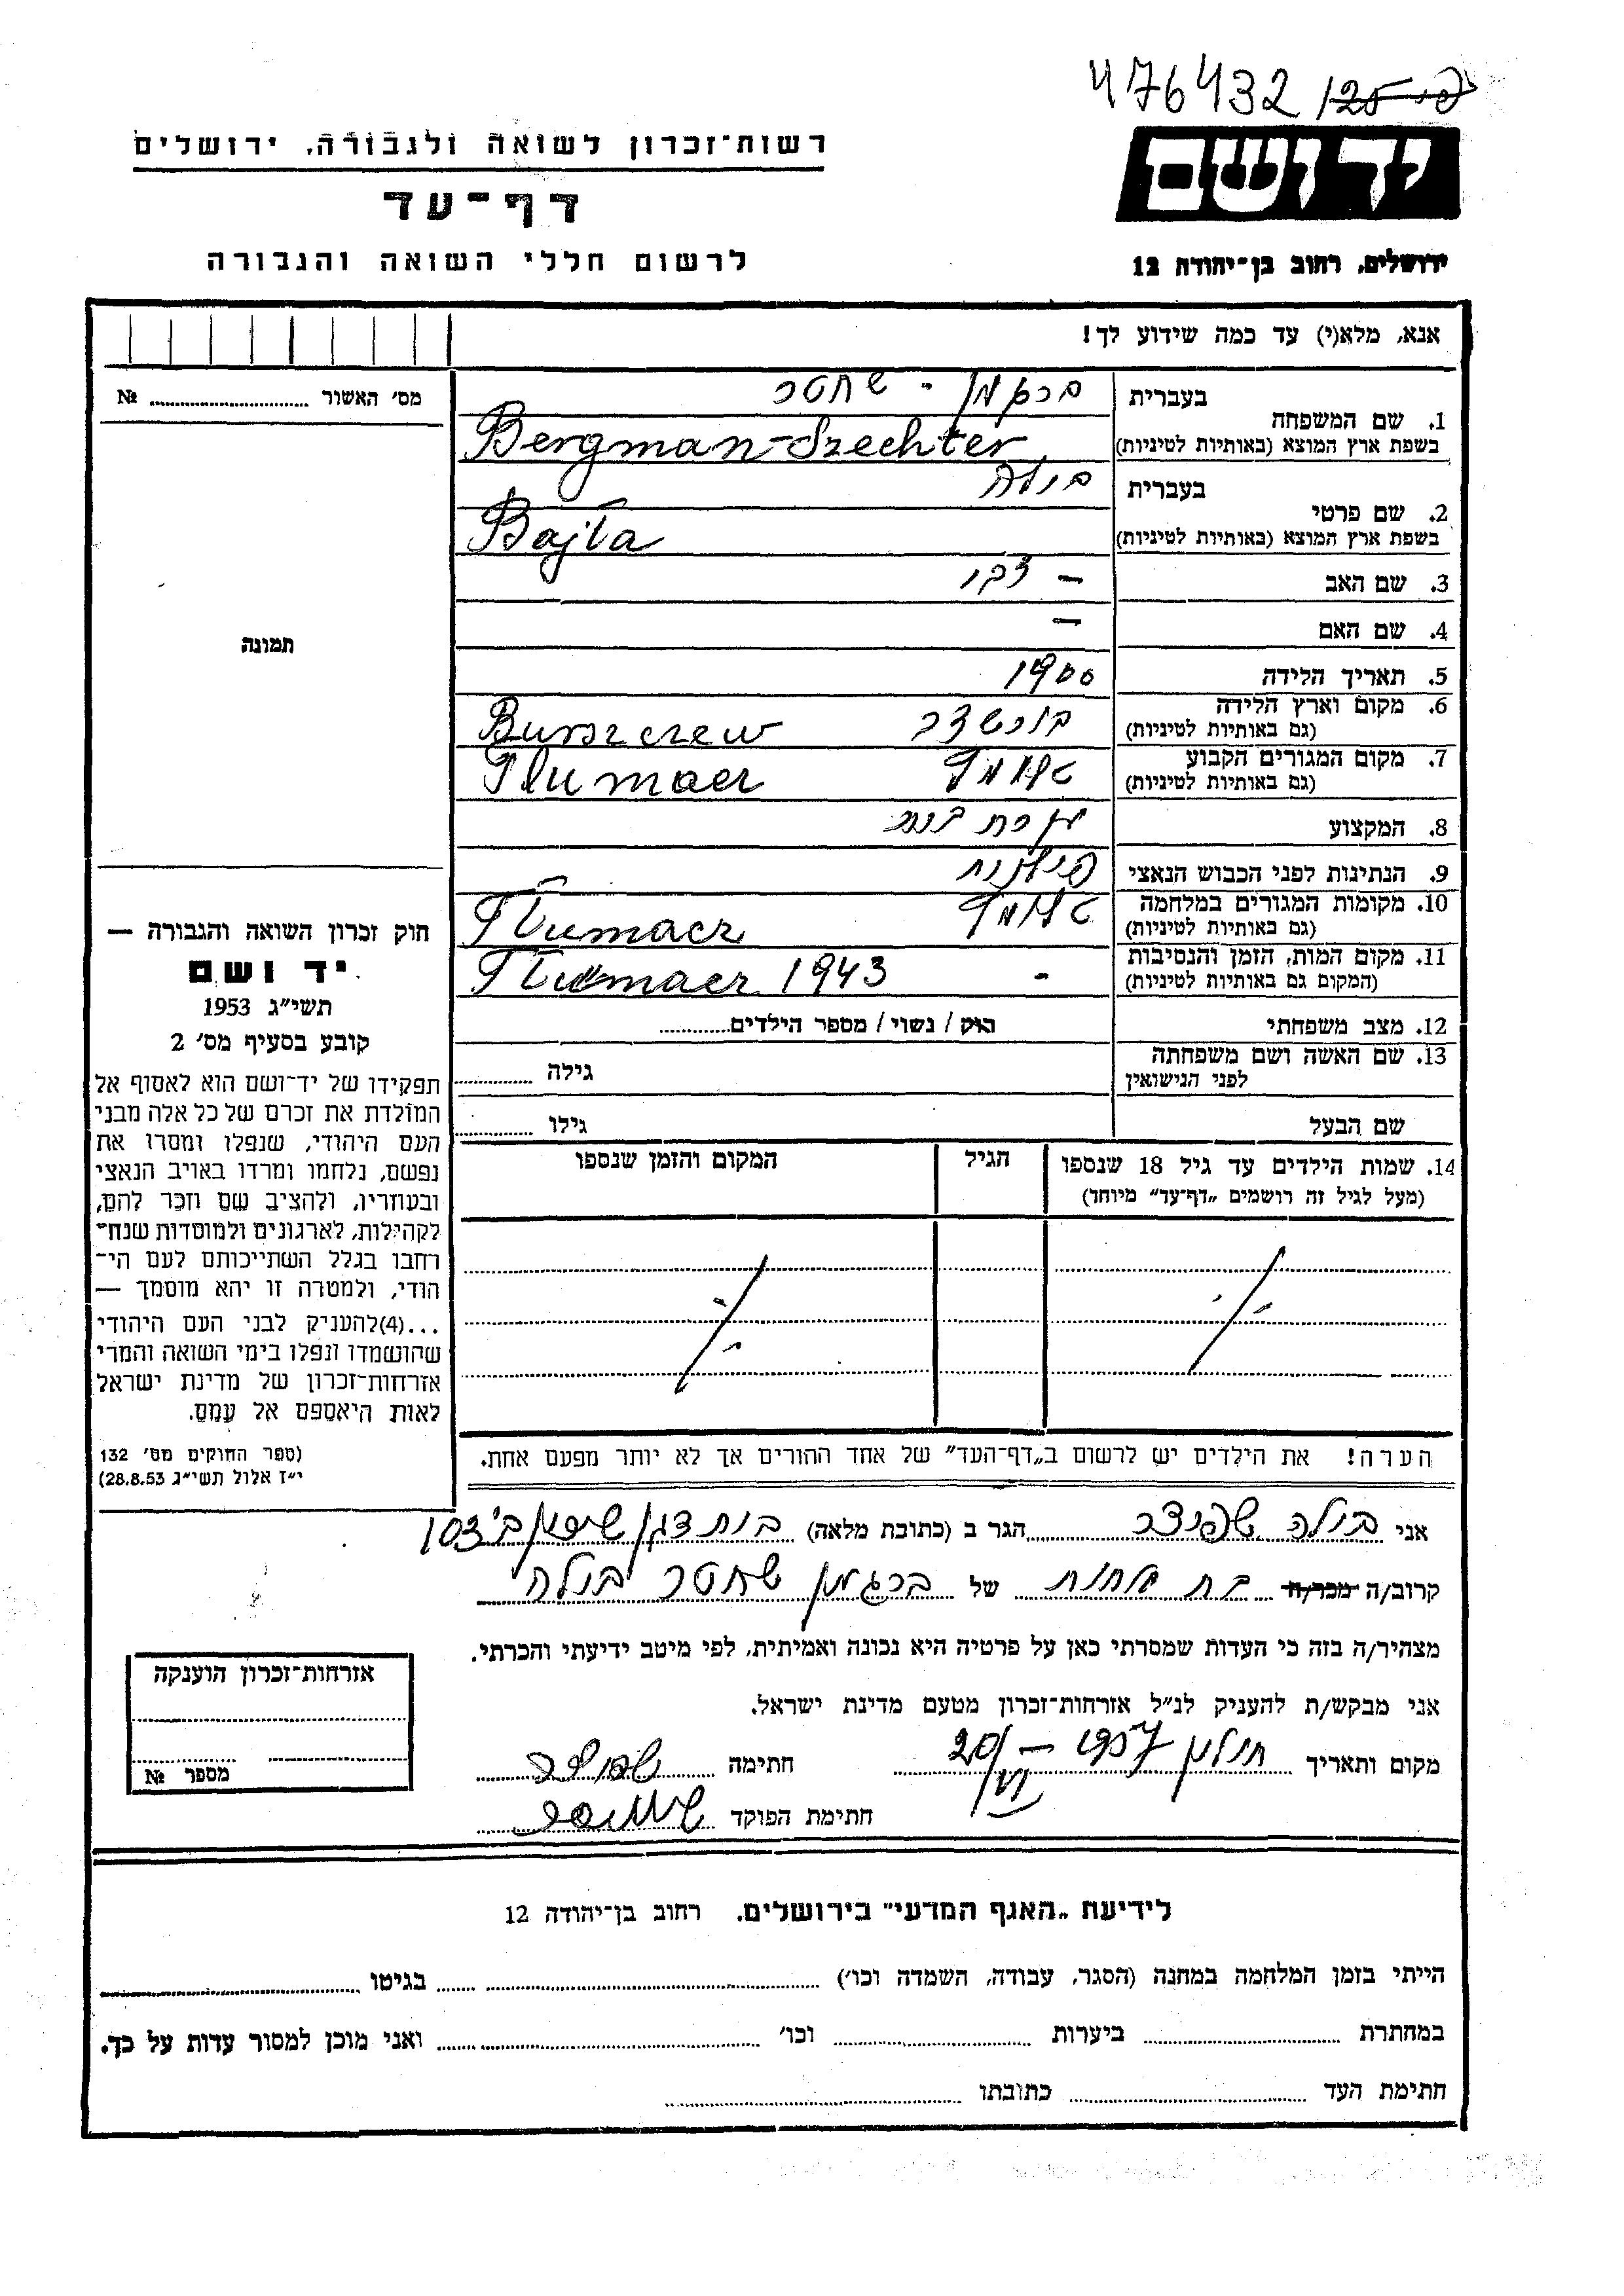 476432
רשות־זכרון לשואה ולגבורה, ירושלים
יד ושם
דף־עד
לרשום חללי השואה והגבורה
ירושלים, רחוב בן־יהודה 12
אנא, מלא(י) עד כמה שידוע לך!
מס׳ האשור № ....................
תמונה
1. שם המשפחה בעברית ברגמן - שחטר
בשפת ארץ המוצא (באותיות לטיניות) Bergman-Szechter
2. שם פרטי בעברית בילה
בשפת ארץ המוצא (באותיות לטיניות) Bajla
3. שם האב –
4. שם האם –
5. תאריך הלידה 1900
6. מקום וארץ הלידה
(גם באותיות לטיניות) Burszczew
7. מקום המגורים הקבוע
(גם באותיות לטיניות) Tlumacz
8. המקצוע
9. הנתינות לפני הכבוש הנאצי פולנית
10. מקומות המגורים במלחמה
(גם באותיות לטיניות) Tlumacz
11. מקום המות, הזמן והנסיבות
(המקום גם באותיות לטיניות) - Tlumacz 1943
12. מצב משפחתי רוק / נשוי / מספר הילדים............
13. שם האשה ושם משפחתה
לפני הנישואין גילה ............
שם הבעל גילו ............
14. שמות הילדים עד גיל 18 שנספו הגיל המקום והזמן שנספו
(מעל לגיל זה רושמים „דף־עד״ מיוחד)
הערה! את הילדים יש לרשום ב„דף־העד״ של אחד ההורים אך לא יותר מפעם אחת.
חוק זכרון השואה והגבורה —
יד ושם
תשי״ג 1953
קובע בסעיף מס׳ 2
תפקידו של יד־ושם הוא לאסוף אל
המולדת את זכרם של כל אלה מבני
העם היהודי, שנפלו ומסרו את
נפשם, נלחמו ומרדו באויב הנאצי
ובעוזריו, ולהציב שם וזכר להם,
לקהילות, לארגונים ולמוסדות שנח־
רבו בגלל השתייכותם לעם הי־
הודי, ולמטרה זו יהא מוסמך —
...(4)להעניק לבני העם היהודי
שהושמדו ונפלו בימי השואה והמרי
אזרחות־זכרון של מדינת ישראל
לאות היאספם אל עמם.
(ספר החוקים מס׳ 132
י״ז אלול תשי״ג 28.8.53)
אני בילה שפיצר הגר ב (כתובת מלאה) בית דגן שיכון ב׳ 103
קרוב/ה מכר/ה בת אחות של ברגמן שחטר בילה
מצהיר/ה בזה כי העדות שמסרתי כאן על פרטיה היא נכונה ואמיתית, לפי מיטב ידיעתי והכרתי.
אני מבקש/ת להעניק לנ״ל אזרחות־זכרון מטעם מדינת ישראל.
מקום ותאריך חולון 1957 – 20/VI חתימה שפיצר
חתימת הפוקד
אזרחות־זכרון הוענקה
מספר №
לידיעת „האגף המדעי״ בירושלים, רחוב בן־יהודה 12
הייתי בזמן המלחמה במחנה (הסגר, עבודה, השמדה וכו׳) .................... בגיטו ....................
במחתרת .................... ביערות .................... וכו׳ .................... ואני מוכן למסור עדות על כך.
חתימת העד .................... כתובתו ....................